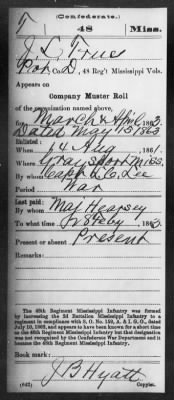 (Confederate.)
T 48 Miss.
J. L. True
Pvt, Co. D, 48 Reg't Mississippi Vols.
Appears on
Company Muster Roll
of the organization named above,
for March & April, 1863.
Dated May 15 1863
Enlisted:
When 14 Aug, 1861.
Where Grays port Miss.
By whom Capt L. C. Lee
Period War
Last paid:
By whom Maj Hearsey
To what time 28 Feby, 1863.
Present or absent Present
Remarks:
The 48th Regiment Mississippi Infantry was formed
by increasing the 2d Battalion Mississippi Infantry to a
regiment in compliance with S. O. No.
and appears to have been known for a short time
as the 46th Regiment Mississippi Infantry but that designation
was not recognized by the Confederate War Department and it
became the 48th Regiment Mississippi Infantry.
Book mark:
J B Hyatt
(642) Copyist.